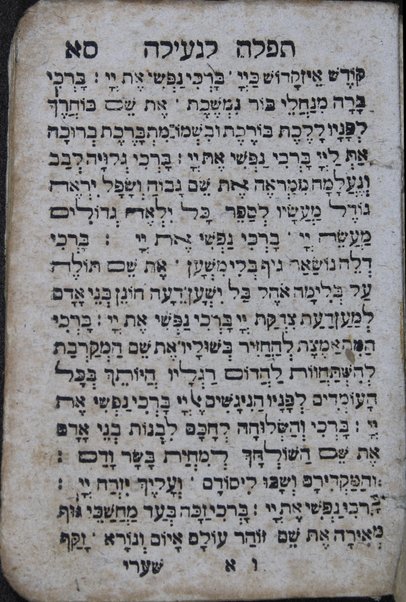 תפלה לנעילה סא
קודש איזקדוש כיי ׳ ברכי נפשי את יי : ברכי
ברה מנחלי בור נמשכת ׳ את שם בוחרך
לפניו ללכת בורכת ובשמו מתברכת ברוכה
את ליי ברכי נפשי את יי : ברכי גלויה לבב
ונעלמה ממראה את שם גבוה ושפל יראה
גודל מעשיו לספר כל ילאה גדולים
מעשה יי ׳ ברכי נפשי את יי : ברכי
דלה נושאה גוף בלי משען ׳ את שם תולה
על בלימה אהל בל יושען דעה חונן בני אדם
למען דעת צדקת יי ברכי נפשי את יי : ברכי
להחזיר בשוליו את שם המקרבת
להשתחוות להדום רגליו היותך בכל
העומדים לפניו הניגשים אל יי ברכי נפשי את
יי : ברכי והשלוחה לחכם לבנות בני אדם
את שם השולחך להחיות בשר ודם :
והמקדירם ושבו ליסודם ׳ ועליך יזרח יי :
ברכי נפשי את יי : ברכי זכה בעד מחשבי גוף
מאירה את שם זוהר עולם איום ונורא ׳ זקף
ו א שערי